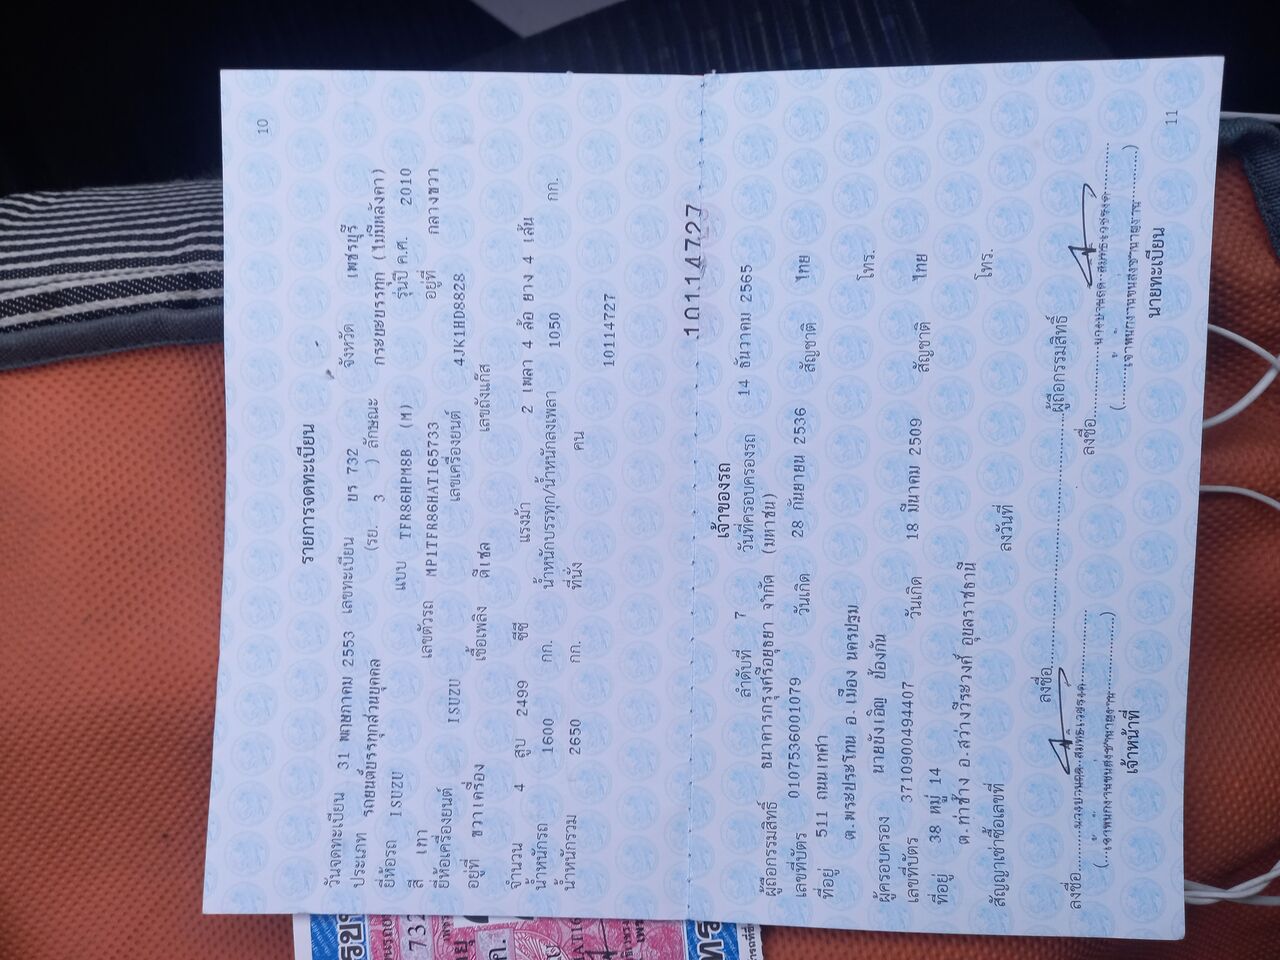 10
รายการจดทะเบียน
วันจดทะเบียน 31 พฤษภาคม 2553 เลขทะเบียน บร 732 จังหวัด เพชรบุรี
ประเภท รถยนต์บรรทุกส่วนบุคคล (รย. 3 ) ลักษณะ กระบะบรรทุก (ไม่มีหลังคา)
ยี่ห้อรถ ISUZU แบบ TFR86HPM8B (M) รุ่นปี ค.ศ. 2010
สี เทา เลขตัวรถ MP1TFR86HAT165733 อยู่ที่ กลางขวา
ยี่ห้อเครื่องยนต์ ISUZU เลขเครื่องยนต์ 4JK1HD8828
อยู่ที่ ขวาเครื่อง เชื้อเพลิง ดีเซล เลขถังแก๊ส
จำนวน 4 สูบ 2499 ซีซี แรงม้า 2 เพลา 4 ล้อ ยาง 4 เส้น
น้ำหนักรถ 1600 กก. น้ำหนักบรรทุก/น้ำหนักลงเพลา 1050 กก.
น้ำหนักรวม 2650 กก. ที่นั่ง คน
10114727
10114727
เจ้าของรถ
ลำดับที่ 7 วันที่ครอบครองรถ 14 ธันวาคม 2565
ผู้ถือกรรมสิทธิ์ ธนาคารกรุงศรีอยุธยา จำกัด (มหาชน)
เลขที่บัตร 0107536001079 วันเกิด 28 กันยายน 2536 สัญชาติ ไทย
ที่อยู่ 511 ถนนเทศา
ต.พระประโทน อ.เมือง นครปฐม โทร.
ผู้ครอบครอง นายบังเอิญ ป้องกัน
เลขที่บัตร 3710900494407 วันเกิด 18 มีนาคม 2509 สัญชาติ ไทย
ที่อยู่ 38 หมู่ 14
ต.ท่าช้าง อ.สว่างวีระวงศ์ อุบลราชธานี โทร.
สัญญาเช่าซื้อเลขที่ ลงวันที่
ลงชื่อ ผู้ถือกรรมสิทธิ์
ลงชื่อ ลงชื่อ
เจ้าหน้าที่ นายทะเบียน
11
732